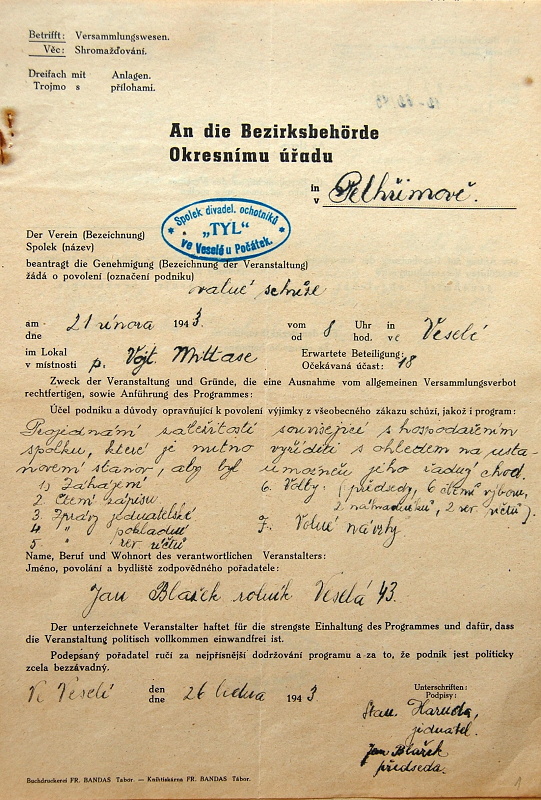 Betrifft: Versammlungswesen.
Věc: Shromažďování.
Dreifach mit Anlagen.
Trojmo s přílohami.
An die Bezirksbehörde
Okresnímu úřadu
in
v Pelhřimově.
Spolek divadel. ochotníků
„TYL“
ve Veselé u Počátek.
Der Verein (Bezeichnung)
Spolek (název)
beantragt die Genehmigung (Bezeichnung der Veranstaltung)
žádá o povolení (označení podniku)
valné schůze
am - dne 21 února 1943. vom od 8 Uhr hod. in ve Veselé
im Lokal Erwartete Beteiligung:
v místnosti p. Vojt. Mittase Očekávaná účast: 18
Zweck der Veranstaltung und Gründe, die eine Ausnahme vom allgemeinen Versammlungsverbot
rechtfertigen, sowie Anführung des Programmes:
Účel podniku a důvody opravňující k povolení výjimky z všeobecného zákazu schůzí, jakož i program:
Projednání záležitostí související s hospodařením
spolku, které je nutno vyříditi s ohledem na usta-
novení stanov, aby byl umožněn jeho řádný chod.
1) Zahájení 6. Volby: (předsedy, 6 členů výboru,
2. Čtení zápisu 2 náhradníků, 2 rev. účtů).
3. Zprávy jednatelské 7. Volné návrhy.
4 " pokladní
5 " rev. účtů
Name, Beruf und Wohnort des verantwortlichen Veranstalters:
Jméno, povolání a bydliště zodpovědného pořadatele:
Jan Blažek rolník Veselá 43.
Der unterzeichnete Veranstalter haftet für die strengste Einhaltung des Programmes und dafür, dass
die Veranstaltung politisch vollkommen einwandfrei ist.
Podepsaný pořadatel ručí za nejpřísnější dodržování programu a za to, že podnik jest politicky
zcela bezzávadný.
Ve Veselé den dne 26 ledna 1943.
Unterschriften:
Podpisy:
Stan. Haruda,
jednatel.
Jan Blažek
předseda.
Buchdruckerei FR. BANDAS Tabor. — Knihtiskárna FR. BANDAS Tábor.
1